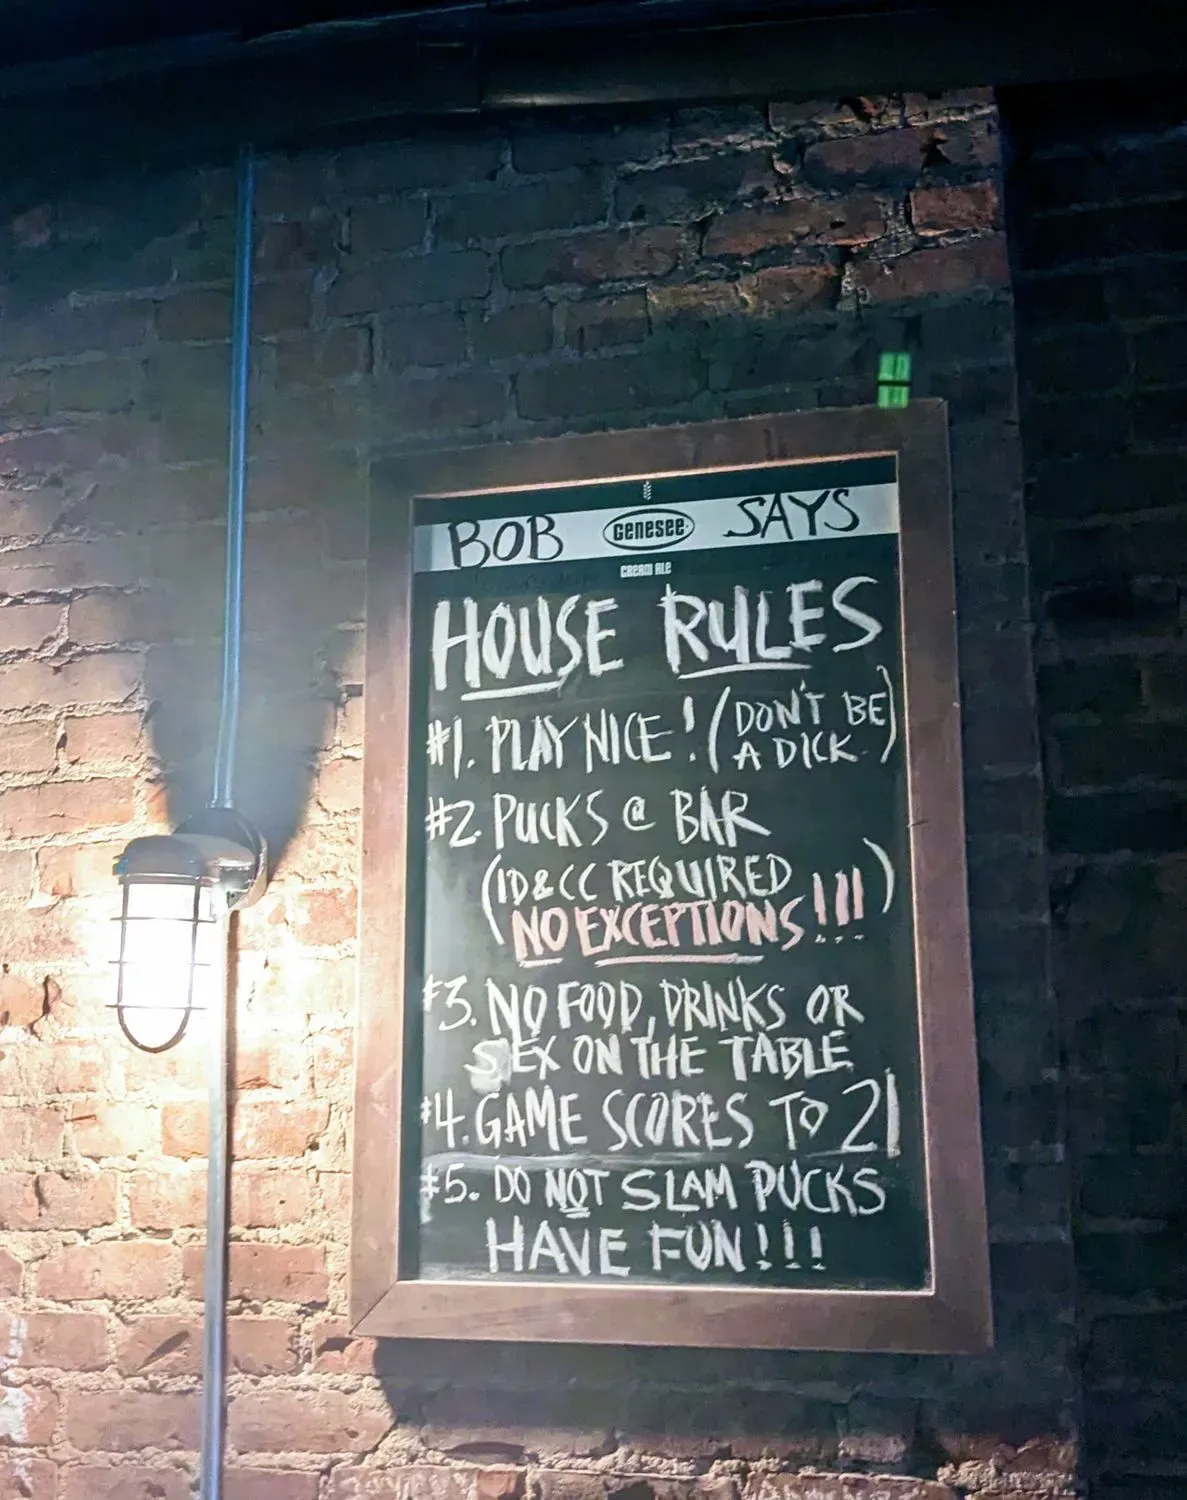 BOB GENESEE SAYS
CREAM ALE
HOUSE RULES
#1. PLAY NICE! (DON'T BE
A DICK.)
#2. PUCKS @ BAR
(ID & CC REQUIRED
NO EXCEPTIONS!!!)
#3. NO FOOD, DRINKS OR
SEX ON THE TABLE
#4. GAME SCORES TO 21
#5. DO NOT SLAM PUCKS
HAVE FUN!!!